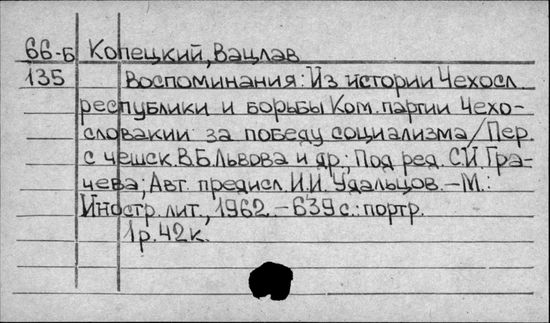 66-Б Копецкий, Вацлав
135 Воспоминания: Из истории Чехосл.
республики и борьбы Ком. партии Чехо-
словакии за победу социализма / Пер.
с чешск. В.Б. Львова и др.; Под ред. С.И. Гра-
чева; Авт. предисл. И.И. Удальцов. - М.:
Иностр. лит., 1962. - 639 с.: портр.
1р. 42к.